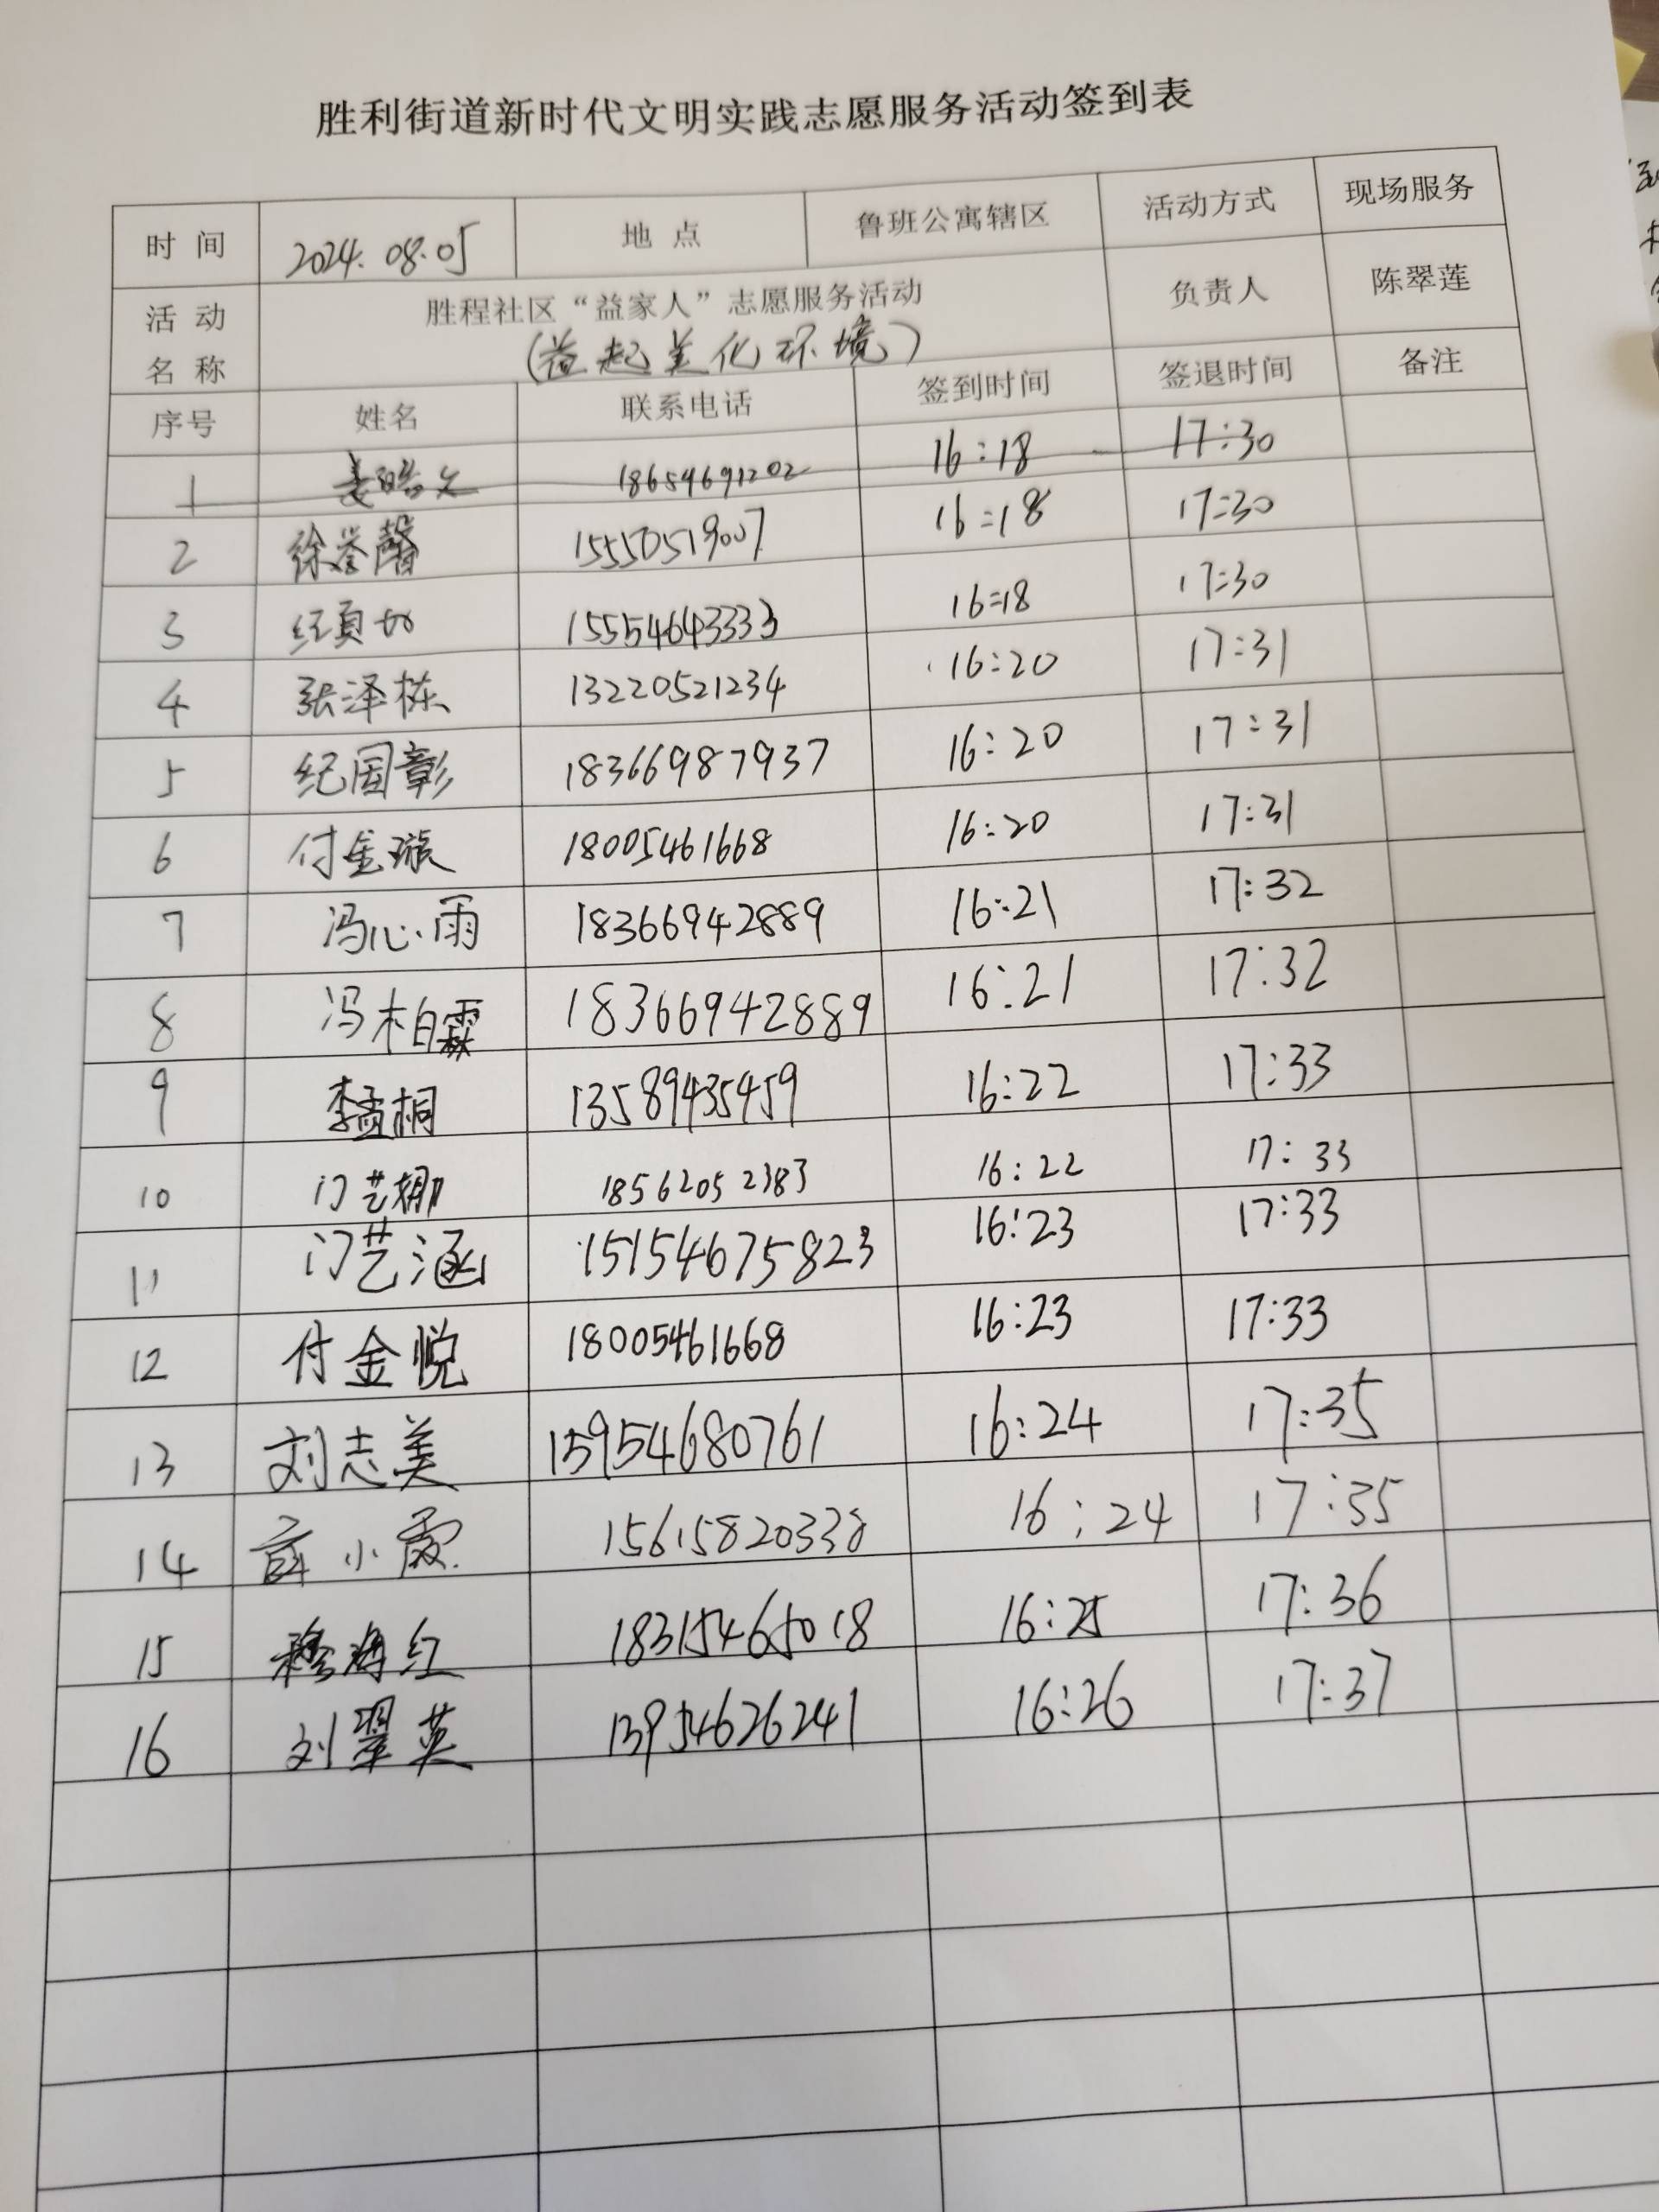 胜利街道新时代文明实践志愿服务活动签到表
时 间 2024.08.05 地 点 鲁班公寓辖区 活动方式 现场服务
活 动 名 称 胜程社区“益家人”志愿服务活动 负责人 陈翠莲
(益起美化环境)
序号 姓名 联系电话 签到时间 签退时间 备注
1 姜皓文 18654691202 16:18 17:30
2 徐誉馨 15550519007 16:18 17:30
3 15554643333 16:18 17:30
4 张泽栋 13220521234 16:20 17:31
5 纪国彰 18366987937 16:20 17:31
6 付金璇 18005461668 16:20 17:31
7 冯心雨 18366942889 16:21 17:32
8 冯柏霖 18366942889 16:21 17:32
9 李孟桐 13589435459 16:22 17:33
10 门艺娜 18562052383 16:22 17:33
11 门艺涵 15154675823 16:23 17:33
12 付金悦 18005461668 16:23 17:33
13 刘志美 15954680761 16:24 17:35
14 薛小霞 15615820338 16:24 17:35
15 穆海红 18315465018 16:25 17:36
16 刘翠英 13954626241 16:26 17:37